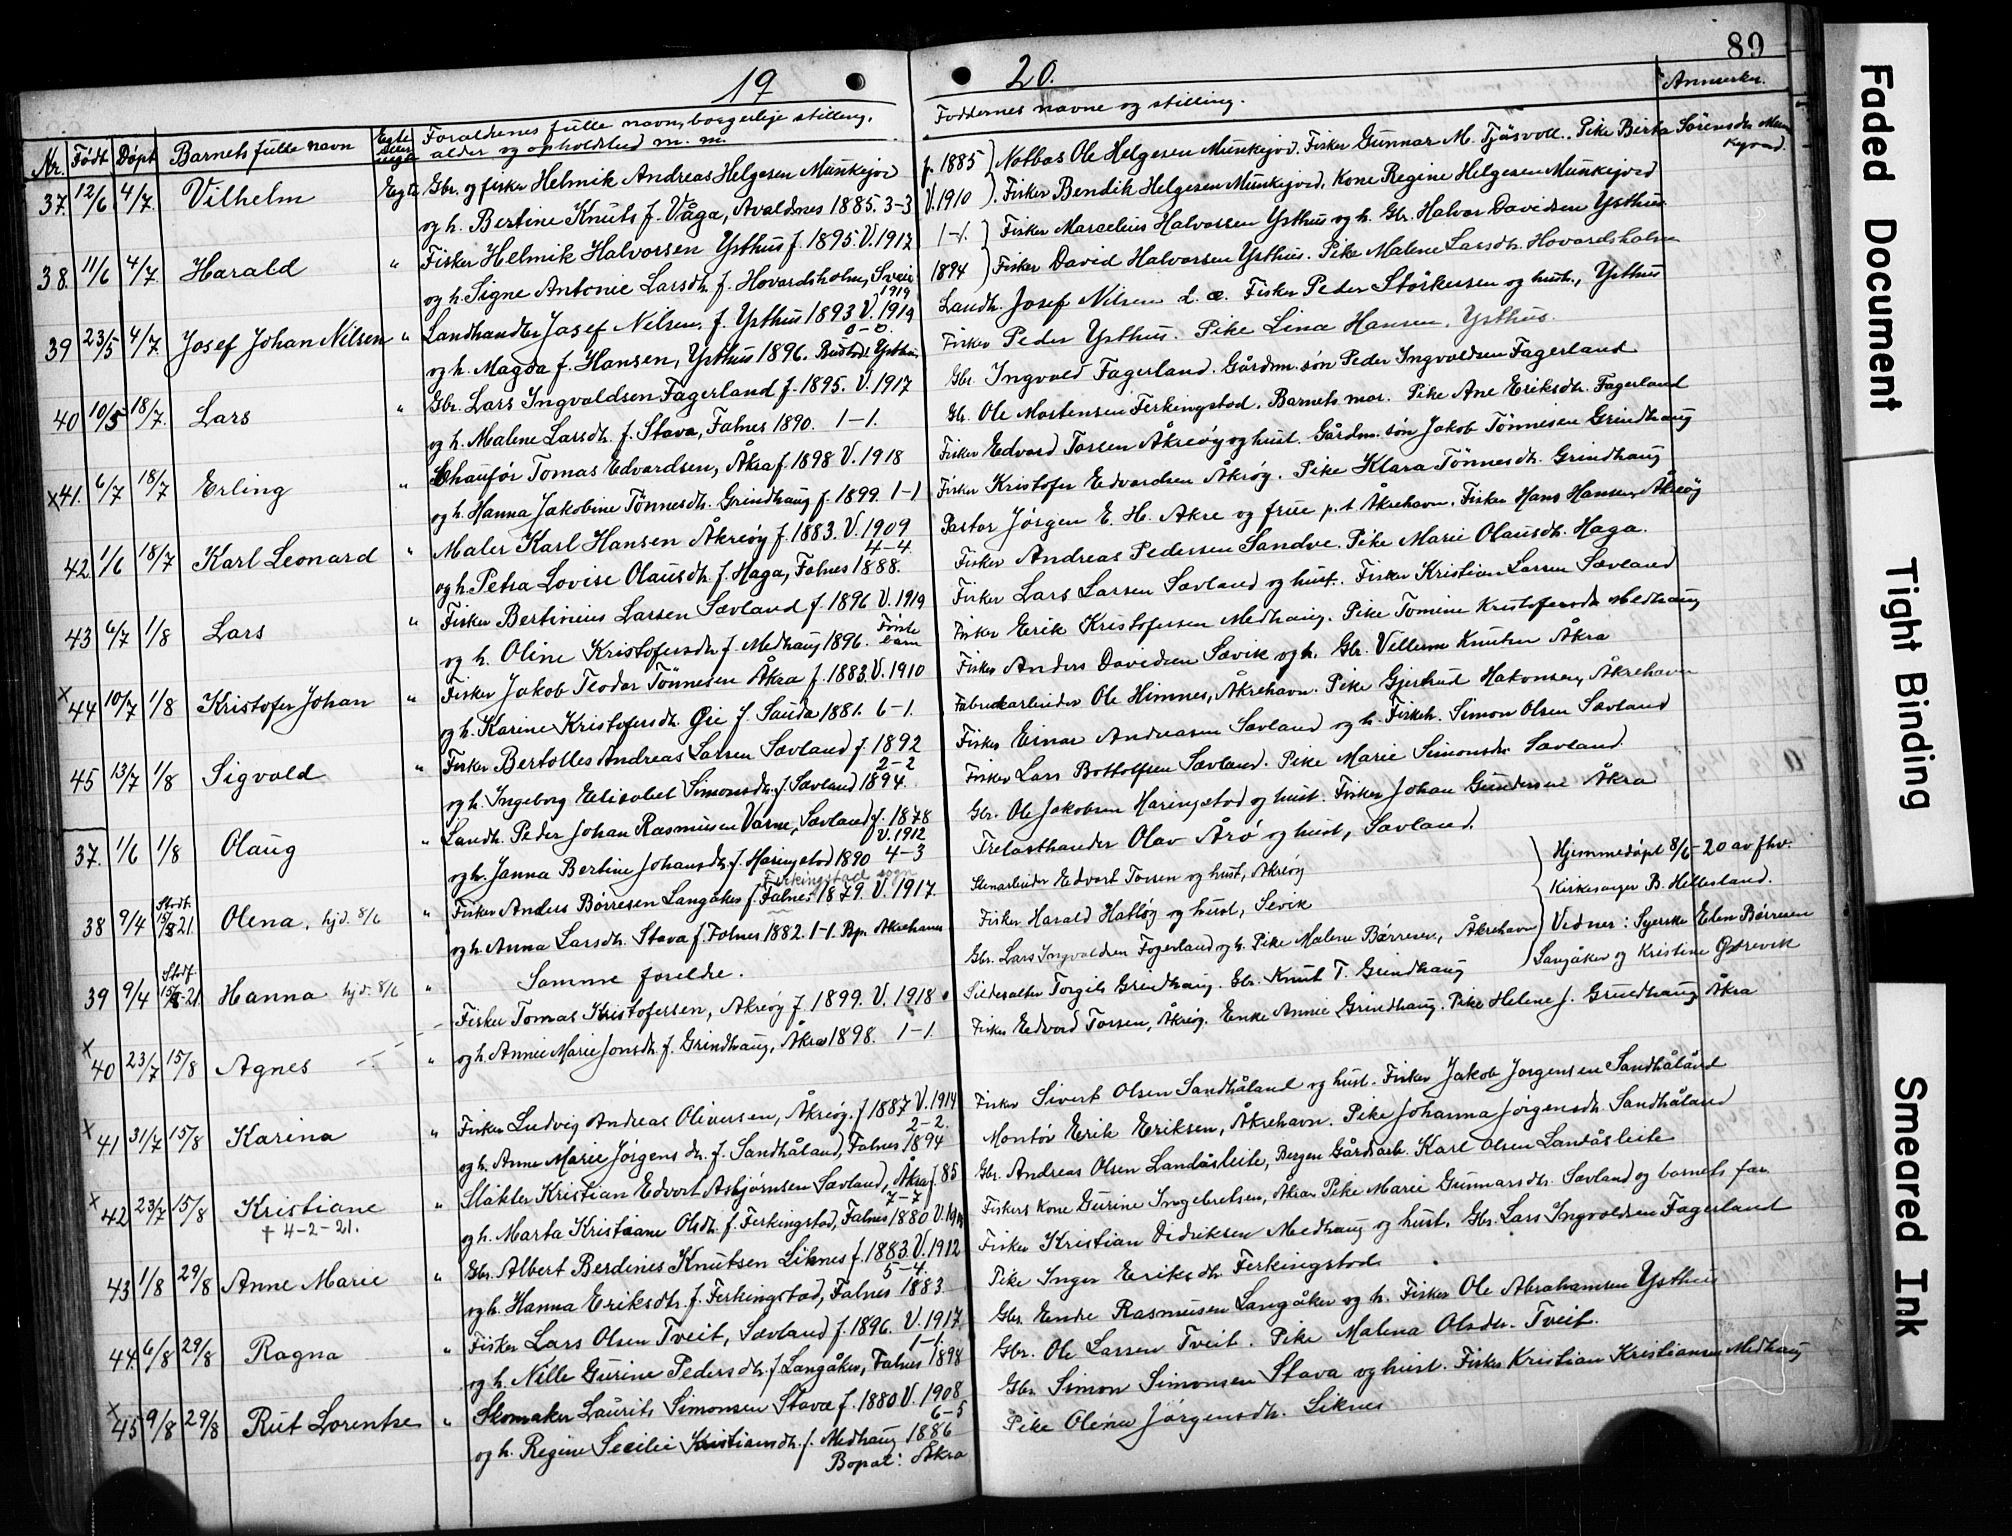 89
19 20.
Nr. Født Døpt Barnets fulle navn Egte Foreldrenes fulle navn, borgerlige stilling, alder og opholdsted m. m. Faddernes navne og stilling. Anmerkn.
37. 12/6 4/7. Vilhelm Egte Gbr. og fisker Helmik Andreas Helgesen Munkejord f. 1885 Notbas Ole Helgesen Munkejord. Fisker Gunnar M. Tjösvoll. Pike Berta Sörensdtr. Munkejord.
og h. Bertine Knuts f. Våga, Avaldsnes 1885. 3-3 V. 1910 Fisker Bendik Helgesen Munkejord. Kone Regine Helgesen Munkejord
38. 11/6 4/7. Harald " Fisker Helmik Halvorsen Ysthus f. 1895. V. 1917 1-1. Fisker Marselius Halvorsen Ysthus og h. Gbr. Halvor Davidsen Ysthus.
og h. Signe Antonie Larsdtr. f. Hovardsholm, Sveio 1894 Fisker David Halvorsen Ysthus. Pike Malene Larsdtr. Hovardsholm
39 23/5 4/7 Josef Johan Nilsen " Landhandler Josef Nilsen f. Ysthus 1893 V. 1919 Landh. Josef Nilsen d. æ. Fisker Peder Störkersen og hust., Ysthus
og h. Magda f. Hansen, Ysthus 1896. 0-0. Bosted: Ysthus Fisker Peder Ysthus. Pike Lina Hansen, Ysthus.
40 10/5 18/7. Lars " Gbr. Lars Ingvaldsen Fagerland f. 1895. V. 1917 Gbr. Ingvald Fagerland. Gårdm. søn Peder Ingvaldsen Fagerland
og h. Malene Larsdtr. f. Stava, Falnes 1890. 1-1. Gbr. Ole Mortensen Ferkingstad. Barnets mor. Pike Ane Eriksdtr. Fagerland
x41. 6/7 18/7 Erling " Chaufør Tomas Edvardsen, Åkra f. 1898 V. 1918 Fisker Edvard Torsen Åkreøy og hust. Gårdm. søn Jakob Tönnesen Grindhaug
og h. Hanna Jakobine Tönnesdtr. Grindhaug f. 1899. 1-1 Fisker Kristofer Edvardsen Åkrøy. Pike Klara Tönnesdtr. Grindhaug
42. 1/6 18/7 Karl Leonard " Maler Karl Hansen Åkreøy f. 1883. V. 1909 Pastor Jörgen E. H. Akre og frue p.t. Åkrehavn. Fisker Hans Hansen, Åkreøy
og h. Petra Lovise Olausdtr. f. Haga, Falnes 1888. 4-4. Fisker Andreas Pedersen Sandve. Pike Marie Olausdtr. Haga.
43 6/7 1/8 Lars " Fisker Bertinius Larsen Sævland f. 1896 V. 1919 Fisker Lars Larsen Sævland og hust. Fisker Kristian Larsen Sævland
og h. Oline Kristofersdtr. f. Medhaug 1896. Første barn Fisker Erik Kristofersen Medhaug. Pike Tomine Kristofersdtr. Medhaug
x44 10/7 1/8 Kristofer Johan " Fisker Jakob Teodor Tönnesen Åkra f. 1883. V. 1910 Fisker Anders Davidsen Sævik og h. Gbr. Villum Knutsen Åkra
og h. Karine Kristofersdtr. Øie f. Sauda 1881. 6-1. Fabrikarbeider Ole Himnes, Åkrehavn. Pike Gjertrud Hakonsen, Åkrehavn
45 13/7 1/8 Sigvald " Fisker Bertolles Andreas Larsen Sævland f. 1892 Fisker Einar Andreasen Sævland og h. Fiskeh. Simon Olsen Sævland
og h. Ingeborg Eelisabet Simonsdtr. f. Sævland 1894. 2-2 Fisker Lars Bottolfsen Sævland. Pike Marie Simonsdtr. Sævland.
37. 1/6 1/8 Olaug " Landh. Peder Johan Rasmusen Varne, Sævland f. 1878 V. 1912 Gbr. Ole Jakobsen Haringstad og hust. Fisker Johan Gundersen Åkra
og h. Janna Bertine Johansdtr. f. Haringstad 1890 4-3 Trelasthandler Olav Årö og hust, Sævland.
38 9/4 Stadf. 15/8 21. Olena. hjd. 8/6 " Fisker Anders Börresen Langåker f. Falnes Ferkingstad sogn 1879. V. 1917. Stenarbeider Edvart Torsen og hust, Akreøy Hjemmedöpt 8/6-20 av fhv.
og h. Anna Larsdtr. Stava f. Falnes 1882. 1-1. Bp. Akrehavn Fisker Harald Hatlöy og hust, Sevik Kirkesanger B. Hellesland.
39 9/4 Stadf. 15/8-21 Hanna hjd. 8/6 " Samme foreldre. Gbr. Lars Ingvaldsen Fagerland og h. Pike Malene Börresen, Åkrehavn Vidner: Syerske Elen Börresen Langåker og Kristine Qvrevik
x40 23/7 15/8 Agnes " Fisker Tomas Kristofersen, Akreøy f. 1899. V. 1918. Sildesalter Torgils Grindhaug. Gbr. Knut T. Grindhaug
og h. Annie Marie Jonsdtr. f. Grindhaug, Åkra 1898. 1-1. Fisker Edvard Torsen, Åkrøy. Enke Annie Grindhaug. Pike Helene J. Grindhaug Åkra
x41 31/7 15/8 Karina " Fisker Ludvig Andreas Oliversen, Åkreøy. f. 1887 V. 1914 Fisker Sivert Olsen Sandhåland og hust. Fisker Jakob Jorgensen Sandhåland
og h. Anne Marie Jörgensdtr. f. Sandhåland, Falnes 1894 2-2. Montör Erik Eriksen, Åkrehavn. Pike Johanna Jörgensdtr. Sandhåland
x42 23/7 15/8 Kristiane " Slakter Kristian Edvart Asbjörnsen Sævland, Åkra f. 85 Gbr. Andreas Olsen Landåsleite, Bergen Gårdsarb. Karl Olsen Landåsleite
† 4-2-21. og h. Marta Kristiane Olsdtr. f. Ferkingstad, Falnes 1880 7-7 Fiskers kone Gurine Ingebretsen, Åkra. Pike Marie Gunnarsdtr. Sævland og barnets far
43 1/8 29/8 Anne Marie " Gbr. Albert Berdines Knutsen Liknes f. 1883. V. 1912 Fisker Kristian Didriksen Medhaug og hust. Gbr. Lars Ingvaldsen Fagerland
og h. Hanna Eriksdtr. f. Ferkingstad, Falnes 1883. 5-4. Pike Inger Eriksdtr. Ferkingstad.
44. 6/8 29/8 Ragna " Fisker Lars Olsen Tveit, Sævland f. 1896. V. 1917. Gbr. Endre Rasmusen Langåker og h. Fisker Ole Abrahamsen Ysthus
og h. Nille Gurine Pedersdtr. f. Langåker, Falnes 1898 1-1. Gbr. Ole Larsen Tveit. Pike Malena Olsdtr. Tveit.
x45 9/8 29/8 Rut Lorentse " Skomaker Laurits Simonsen Stava f. 1880 V. 1908 Gbr. Simon Simonsen Stava og hust. Fisker Kristian Kristiansen Medhaug
og h. Regine Secilie Kristiansdtr. f. Medhaug 1886 6-5 Pike Olena Jörgensdtr. Liknes
Bopæl: Åkra
Faded Document
Tight Binding
Smeared Ink